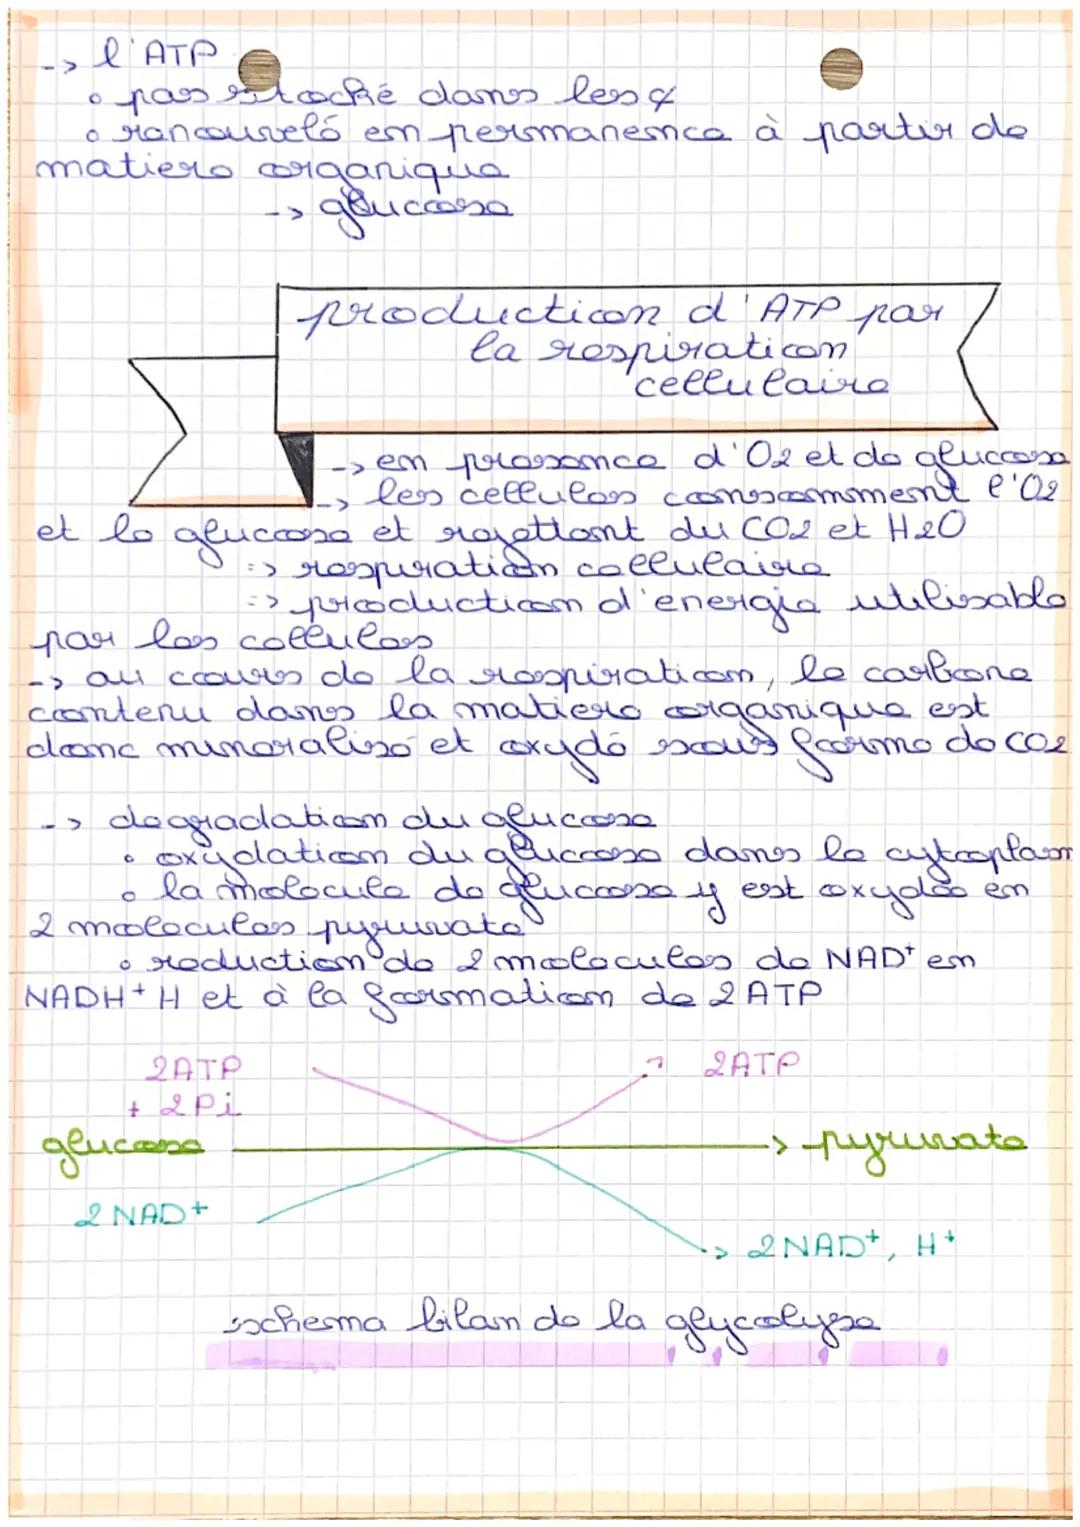 -> l'ATP
◦ pas stocké dans les ¢
◦ renouvelé en permanence à partir de
matiere organique
-> glucose
production d'ATP par
la respiration
cellulaire
-> en presence d'O2 et de glucose
-> les cellules consomment l'O2
et le glucose et rejettent du CO2 et H2O
=> respiration cellulaire
=> production d'energie utilisable
par les cellules
-> au cours de la respiration, le carbone
contenu dans la matiere organique est
donc mineralisé et oxydé sous forme de CO2
-> degradation du glucose
◦ oxydation du glucose dans le cytoplasm
◦ la molecule de glucose y est oxydée en
2 molecules pyruvate
◦ reduction de 2 molecules de NAD+ en
NADH+ H et à la formation de 2 ATP
2ATP 2ATP
+ 2Pi
glucose -> pyruvate
2 NAD+
-> 2NAD+, H+
schema bilan de la glycolyse